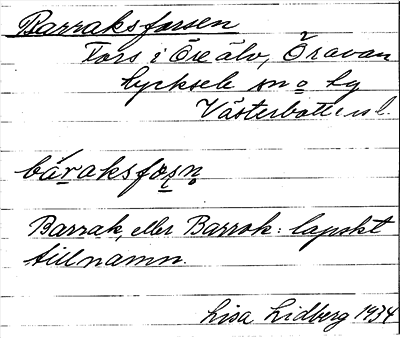 Barraksforsen
Fors i Öre älv, Öravan
Lycksele sn o by
Västerbottens l.
báraksfors̥n̥
Barrak, eller Barrok: lapskt
tillnamn.
Lisa Lidberg 1934